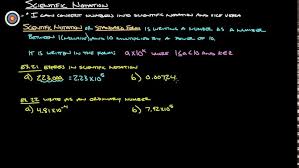 SCIENTIFIC NOTATION
I CAN CONVERT NUMBERS INTO SCIENTIFIC NOTATION AND VICE VERSA
SCIENTIFIC NOTATION OR STANDARD FORM IS WRITING A NUMBER AS A NUMBER
BETWEEN 1 (INCLUSIVE) AND 10 MULTIPLIED BY A POWER OF 10.
IT IS WRITTEN IN THE FORM a×10ⁿ WHERE 1≤a<10 AND
EXPRESS IN SCIENTIFIC NOTATION
a) 223,000 = 2.23×10⁵ b) 0.00724
WRITE AS AN ORDINARY NUMBER
a) 4.81×10⁻⁴ b) 7.92×10